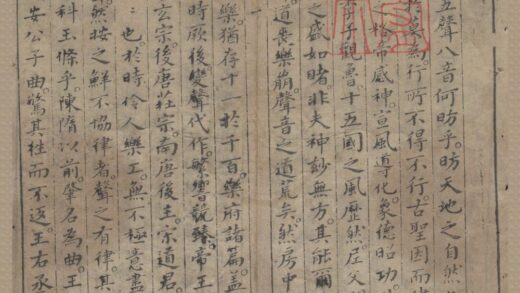 五聲八音何昉乎昉天地之自然
於莫為行所不得不行古聖因而
格帝感神宣風導化象德昭功
季子觀魯十五國之風歷然居文
之盛如睹非夫神妙無方其能爾
道喪樂崩聲音之道荒矣然房中
樂猶存十一於千百樂府諸篇蓋
時厥後變聲代作繁響競臻帝王
玄宗後唐莊宗南唐後王宗道君
也於時伶人樂工無不極意書
然按之鮮不協律者聲之有律其
科玉條乎陳隋以前肇名為曲王
安公子曲驚其往而不返王右丞